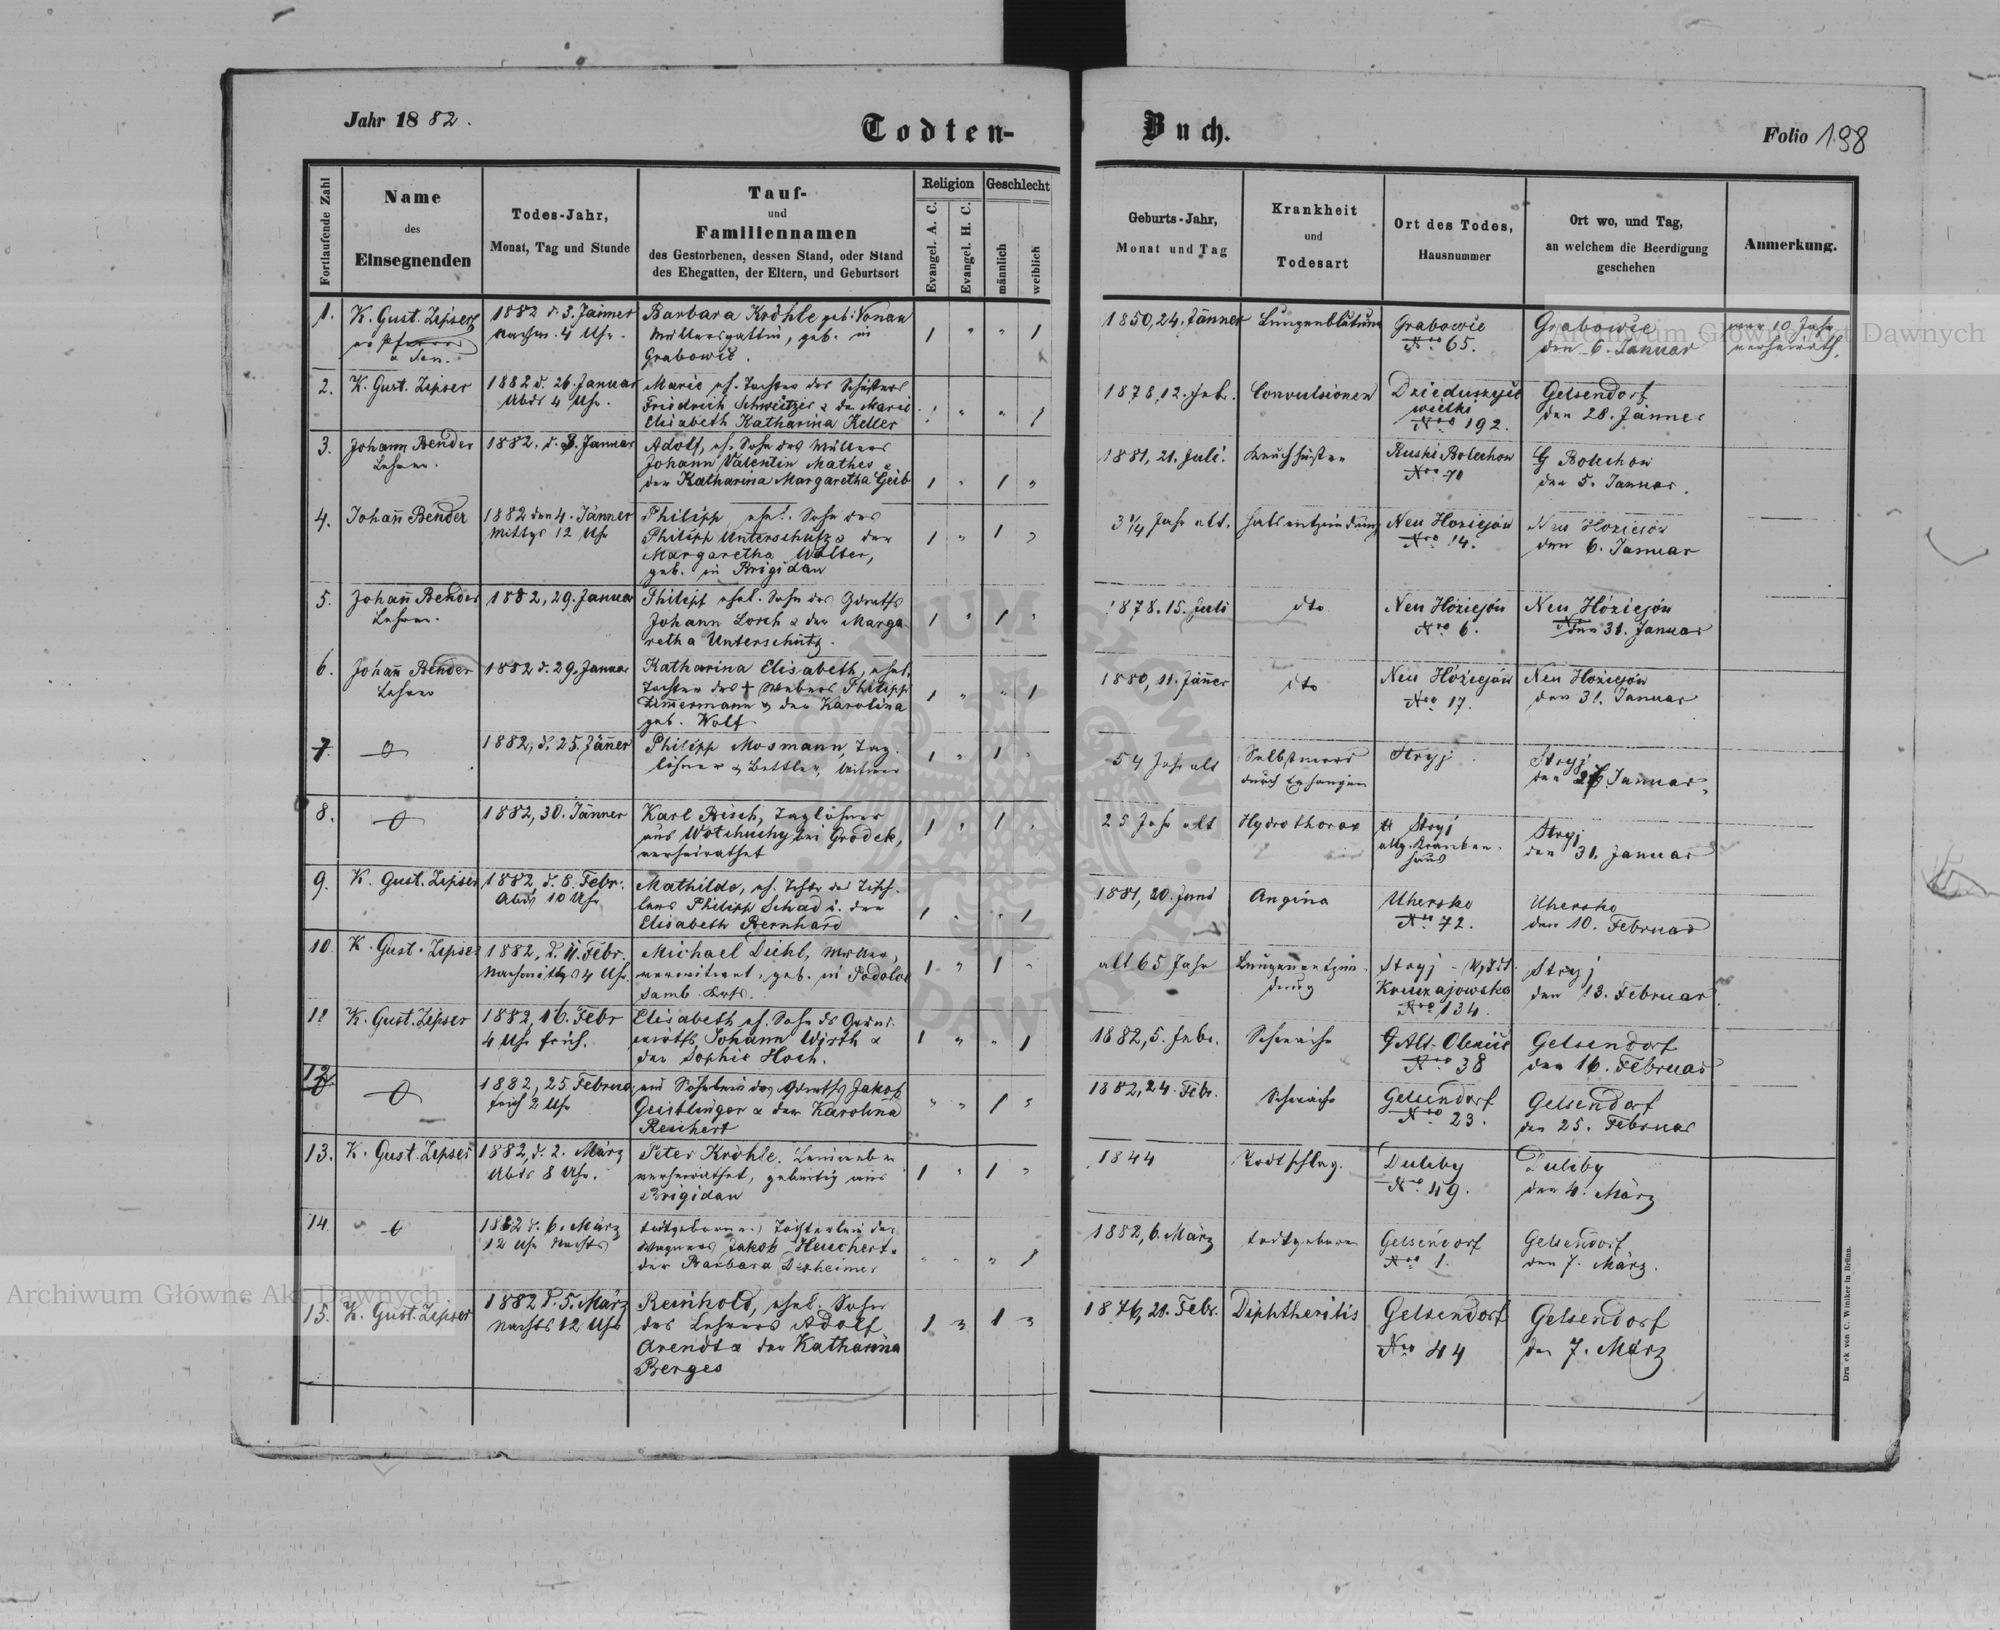 Jahr 1882.
Todten-
Buch.
Folio 198
Fortlaufende Zahl
Name
des
Einsegnenden
Todes-Jahr,
Monat, Tag und Stunde
Tauf-
und
Familiennamen
des Gestorbenen, dessen Stand, oder Stand
des Ehegatten, der Eltern, und Geburtsort
Religion
Evangel. A. C.
Evangel. H. C.
Geschlecht
männlich
weiblich
Geburts-Jahr,
Monat und Tag
Krankheit
und
Todesart
Ort des Todes,
Hausnummer
Ort wo, und Tag,
an welchem die Beerdigung
geschehen
Anmerkung.
1.
K. Gust. Zipser
1882 d. 3. Jänner
Nachm. 4 Uhr.
Barbara Kröhle geb. Nonan
Müllersgattin, geb. in
Grabowic.
1 " " 1
1850, 24. Jänner
Lungenblutung
Grabowic
Nro 65.
Grabowic
den 6. Januar
war 10 Jahr
verheirath.
2.
K. Gust. Zipser
1882 d. 26. Januar
Abds 4 Uhr.
Marie, eh. Tochter des Schusters
Friedrich Schweitzer & der Marie
Elisabeth Katharina Keller
1 " " 1
1878, 12. Feb.
Convulsionen
Dzieduszyce
wielki
Nro 192.
Gelsendorf
den 28. Jänner
3.
Johann Bender
Lehrer.
1882. d. 3. Januar
Adolf, eh. Sohn des Müllers
Johann Valentin Mathes &
der Katharina Margaretha Geib
1 " 1 "
1881, 21. Juli.
Keuchhusten
Ruski Bolechow
Nro 70
Bolechow
den 5. Januar.
4.
Johañ Bender
1882 den 4. Jänner
Mittgs 12 Uhr
Philipp, ehel. Sohn des
Philipp Unterschütz & der
Margaretha Walter,
geb. in Brigidau
1 " 1 "
3 1/4 Jahr alt.
Halsentzündung
Neu Hoziejów
Nro 14.
Neu Hoziejów
den 6. Januar
5.
Johañ Bender
Lehrer.
1882, 29. Januar
Philipp ehel. Sohn des Gdraths
Johann Lorch & der Marga
retha Unterschütz.
1 " 1 "
1878, 15. Juli
dto
Neu Hóziejów
Nro 6.
Neu Hóziejów
den 31. Januar
6.
Johañ Bender
Lehrer
1882 d. 29. Januar
Katharina Elisabeth, ehel.
Tochter des † Webers Philipp
Zimmermann & der Karolina
geb. Wolf
1 " " 1
1880, 11. Jäner
dto
Neu Hóziejów
Nro 17.
Neu Hoziejów
den 31. Januar
7.
1882, d. 25. Jäner
Philipp Mosmann, Tag
löhner & Bettler, Witwer
1 " 1 "
54 Jahr alt
Selbstmord
durch Erhangen
Stryj
Stryj
den 27. Januar.
8.
1882, 30. Jänner
Karl Bisch, Taglöhner
aus Wotschuchy bei Grodek,
verheirathet
1 " 1 "
25 Jahr alt
Hydrothorax
Stryj
allg. Kranken-
haus
Stryj
den 31. Januar
9.
K. Gust. Zipser
1882, d. 8. Febr.
Abds 10 Uhr
Mathilde, eh. Tochter des Tisch-
lers Philipp Schad u. der
Elisabeth Bernhard
1 " " 1
1881, 20. Juni
Angina
Uhersko
Nro 72.
Uhersko
den 10. Februar
10.
K. Gust. Zipser
1882, d. 11. Febr.
Nachmittgs 4 Uhr
Michael Diehl,
geb. in Podolce
1 " 1 "
alt 65 Jahr
Lungenentzün-
dung
Stryj
Nro 134.
Stryj
den 13. Februar.
11
K. Gust. Zipser
1882, 16. Febr
4 Uhr früh.
Elisabeth eh. Sohn ds Grund-
wirths Johann Wirth &
der Sophie Hoch.
1 " " 1
1882, 5. Febr.
Schwäche
Alt-Oleniec
Nro 38
Gelsendorf
den 16. Februar
12.
1882, 25 Februar
früh 2 Uhr
ein Söhnlein des Gdraths Jakob
Geistlinger & der Karolina
Reichert
" " 1 "
1882, 24. Febr.
Schwäche
Gelsendorf
Nro 23.
Gelsendorf
den 25. Februar
13.
K. Gust. Zipser
1882, d. 2. März
Abds 8 Uhr.
Peter Kröhle, Leinweber
verheirathet, gebürtig aus
Brigidau
1 " 1 "
1844
Todtschlag.
Duliby
Nro 49.
Duliby
den 4. März
14.
1882 d. 6. März
12 Uhr Nachts
todtgeborenes Töchterlein des
Wagners Jakob Heuchert &
der Barbara Dexheimer
" " " 1
1882, 6. März
todtgeboren
Gelsendorf
Nro 1.
Gelsendorf
den 7. März.
15.
K. Gust. Zipser
1882 d. 5. März
Nachts 12 Uhr
Reinhold, ehel. Sohn
des Lehrers Adolf
Arendt & der Katharina
Berges
1 " 1 "
1876, 21. Febr.
Diphtheritis
Gelsendorf
Nro 44
Gelsendorf
den 7. März
Druck von C. Winiker in Brünn.
Archiwum Główne Akt Dawnych
Archiwum Główne Akt Dawnych
ARCHIWUM GŁÓWNE AKT DAWNYCH